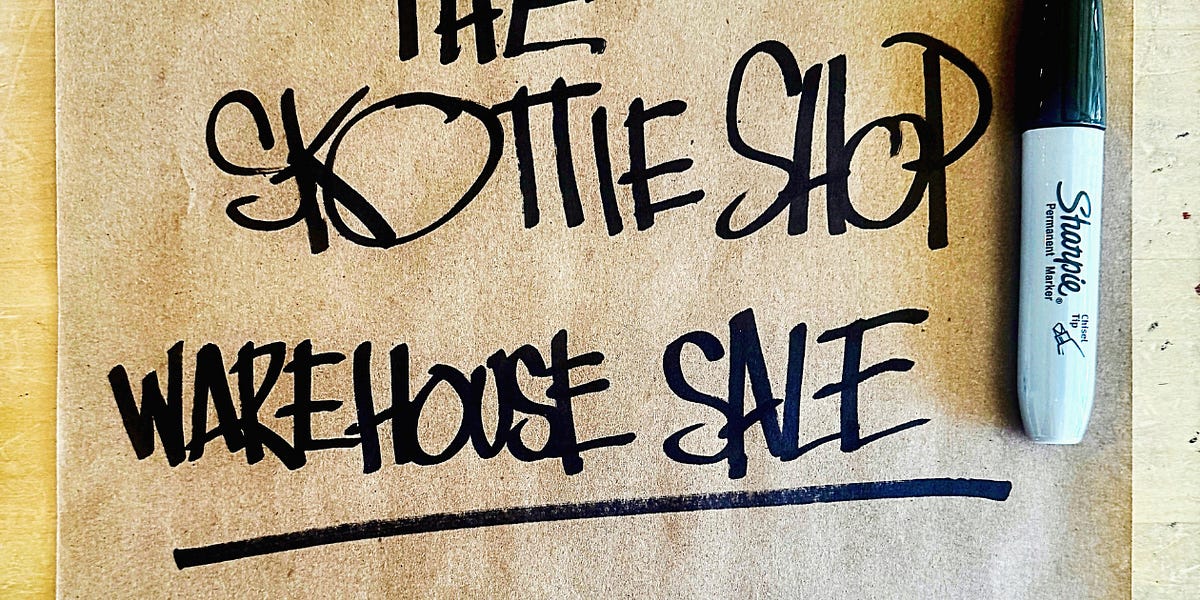 THE
SKOTTIE SHOP
WAREHOUSE SALE
Sharpie®
Permanent Marker
Chisel
Tip